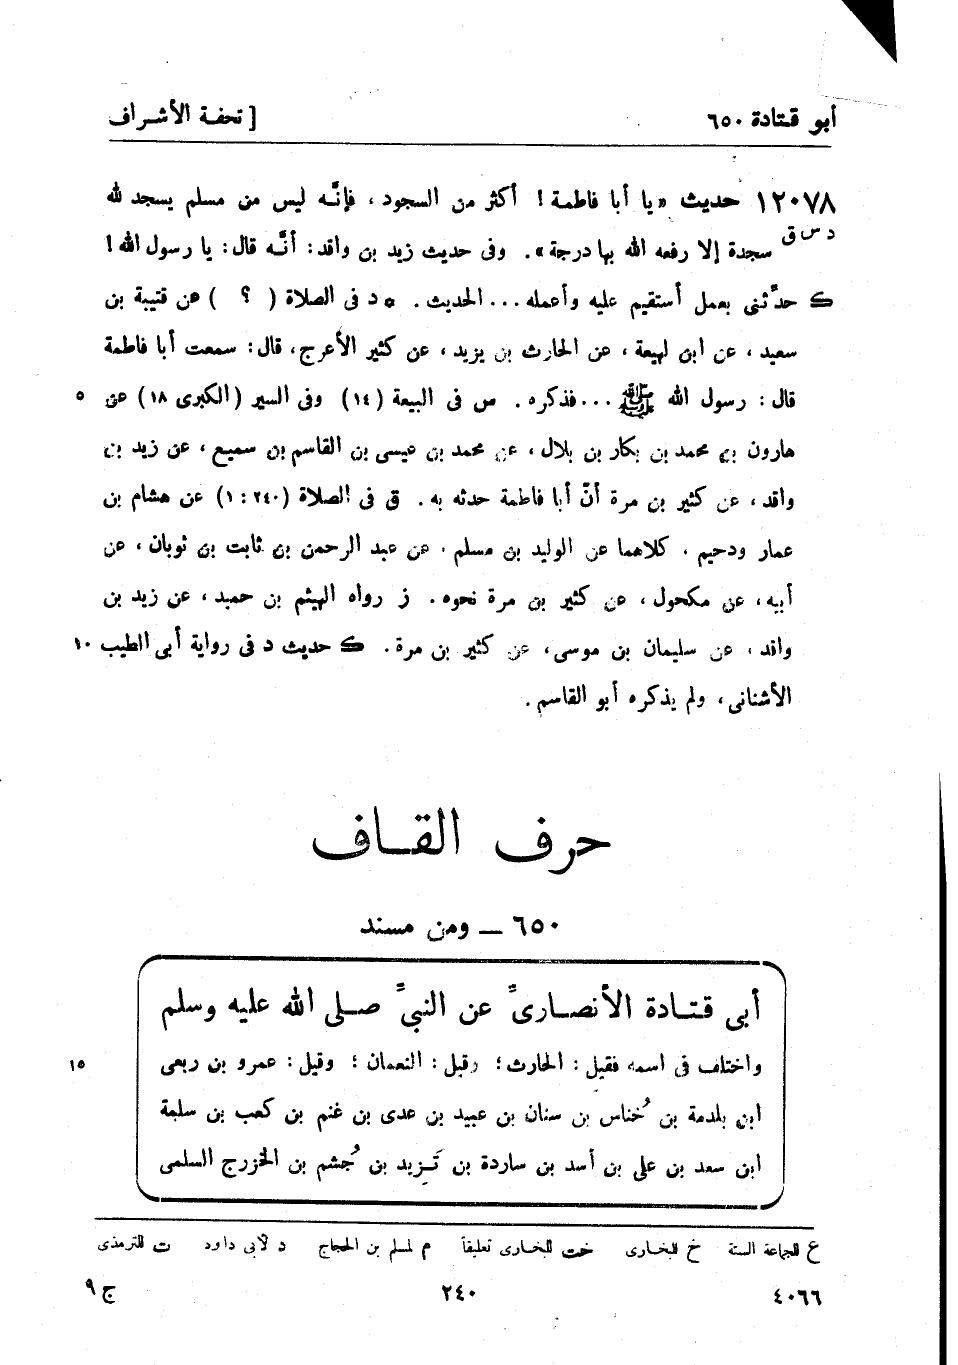 أبو قـتادة ٦٥٠
[ تحفـة الأشـراف
١٢٠٧٨ حديث «يا أبا فاطمـة ! أكثر من السجود ، فإنَّـه ليس من مسلم يسجد لله
د س ق سجدة إلا رفعه الله بها درجة» . وفى حديث زيد بن واقد : أنَّـه قال : يا رسول الله !
ك حدَّثنى بعمل أستقيم عليه وأعمله ... الحديث . * د فى الصلاة ( ؟ ) عن قتيبة بن
سعيد ، عن ابن لهيعة ، عن الحارث بن يزيد ، عن كثير الأعرج ، قال : سمعت أبا فاطمة
قال : رسول الله ﷺ ... فذكره . س فى البيعة (١٤) وفى السير (الكبرى ١٨) عن ٥
هارون بن محمد بن بكار بن بلال ، عن محمد بن عيسى بن القاسم بن سميع ، عن زيد بن
واقد ، عن كثير بن مرة أنّ أبا فاطمة حدثه به . ق فى الصلاة (٢٤٠ : ١) عن هشام بن
عمار ودحيم ، كلاهما عن الوليد بن مسلم ، عن عبد الرحمن بن ثابت بن ثوبان ، عن
أبيه ، عن مكحول ، عن كثير بن مرة نحوه . ز رواه الهيثم بن حميد ، عن زيد بن
واقد ، عن سليمان بن موسى ، عن كثير بن مرة . ك حديث د فى رواية أبى الطيب ١٠
الأشنانى ، ولم يذكره أبو القاسم .
حرف القـاف
٦٥٠ — ومن مسند
أبى قتـادة الأنصـارىّ عن النبىّ صلى الله عليه وسلم
واختلف فى اسمه فقيل : الحارث ؛ وقيل : النعمان ؛ وقيل : عمرو بن ربعى ١٥
ابن بلدمة بن خُناس بن سنان بن عبيد بن عدى بن غنم بن كعب بن سلمة
ابن سعد بن على بن أسد بن ساردة بن تَـزيد بن جُشم بن الخزرج السلمى
ع للجماعة الستة خ للبخارى خت للبخارى تعليقاً م لمسلم بن الحجاج د لأبى داود ت للترمذى
٤٠٦٦
٢٤٠
ج ٩